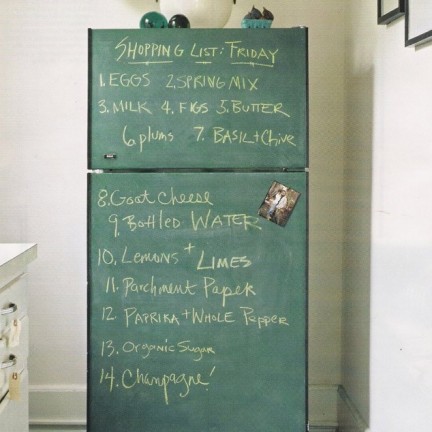 SHOPPING LIST: FRIDAY
1. EGGS 2. SPRING MIX
3. MILK 4. FIGS 5. BUTTER
6. plums 7. BASIL + Chive
8. Goat cheese
9. Bottled WATER
10. Lemons + LIMES
11. Parchment Paper
12. PAPRIKA + WHOLE Pepper
13. Organic Sugar
14. Champagne!